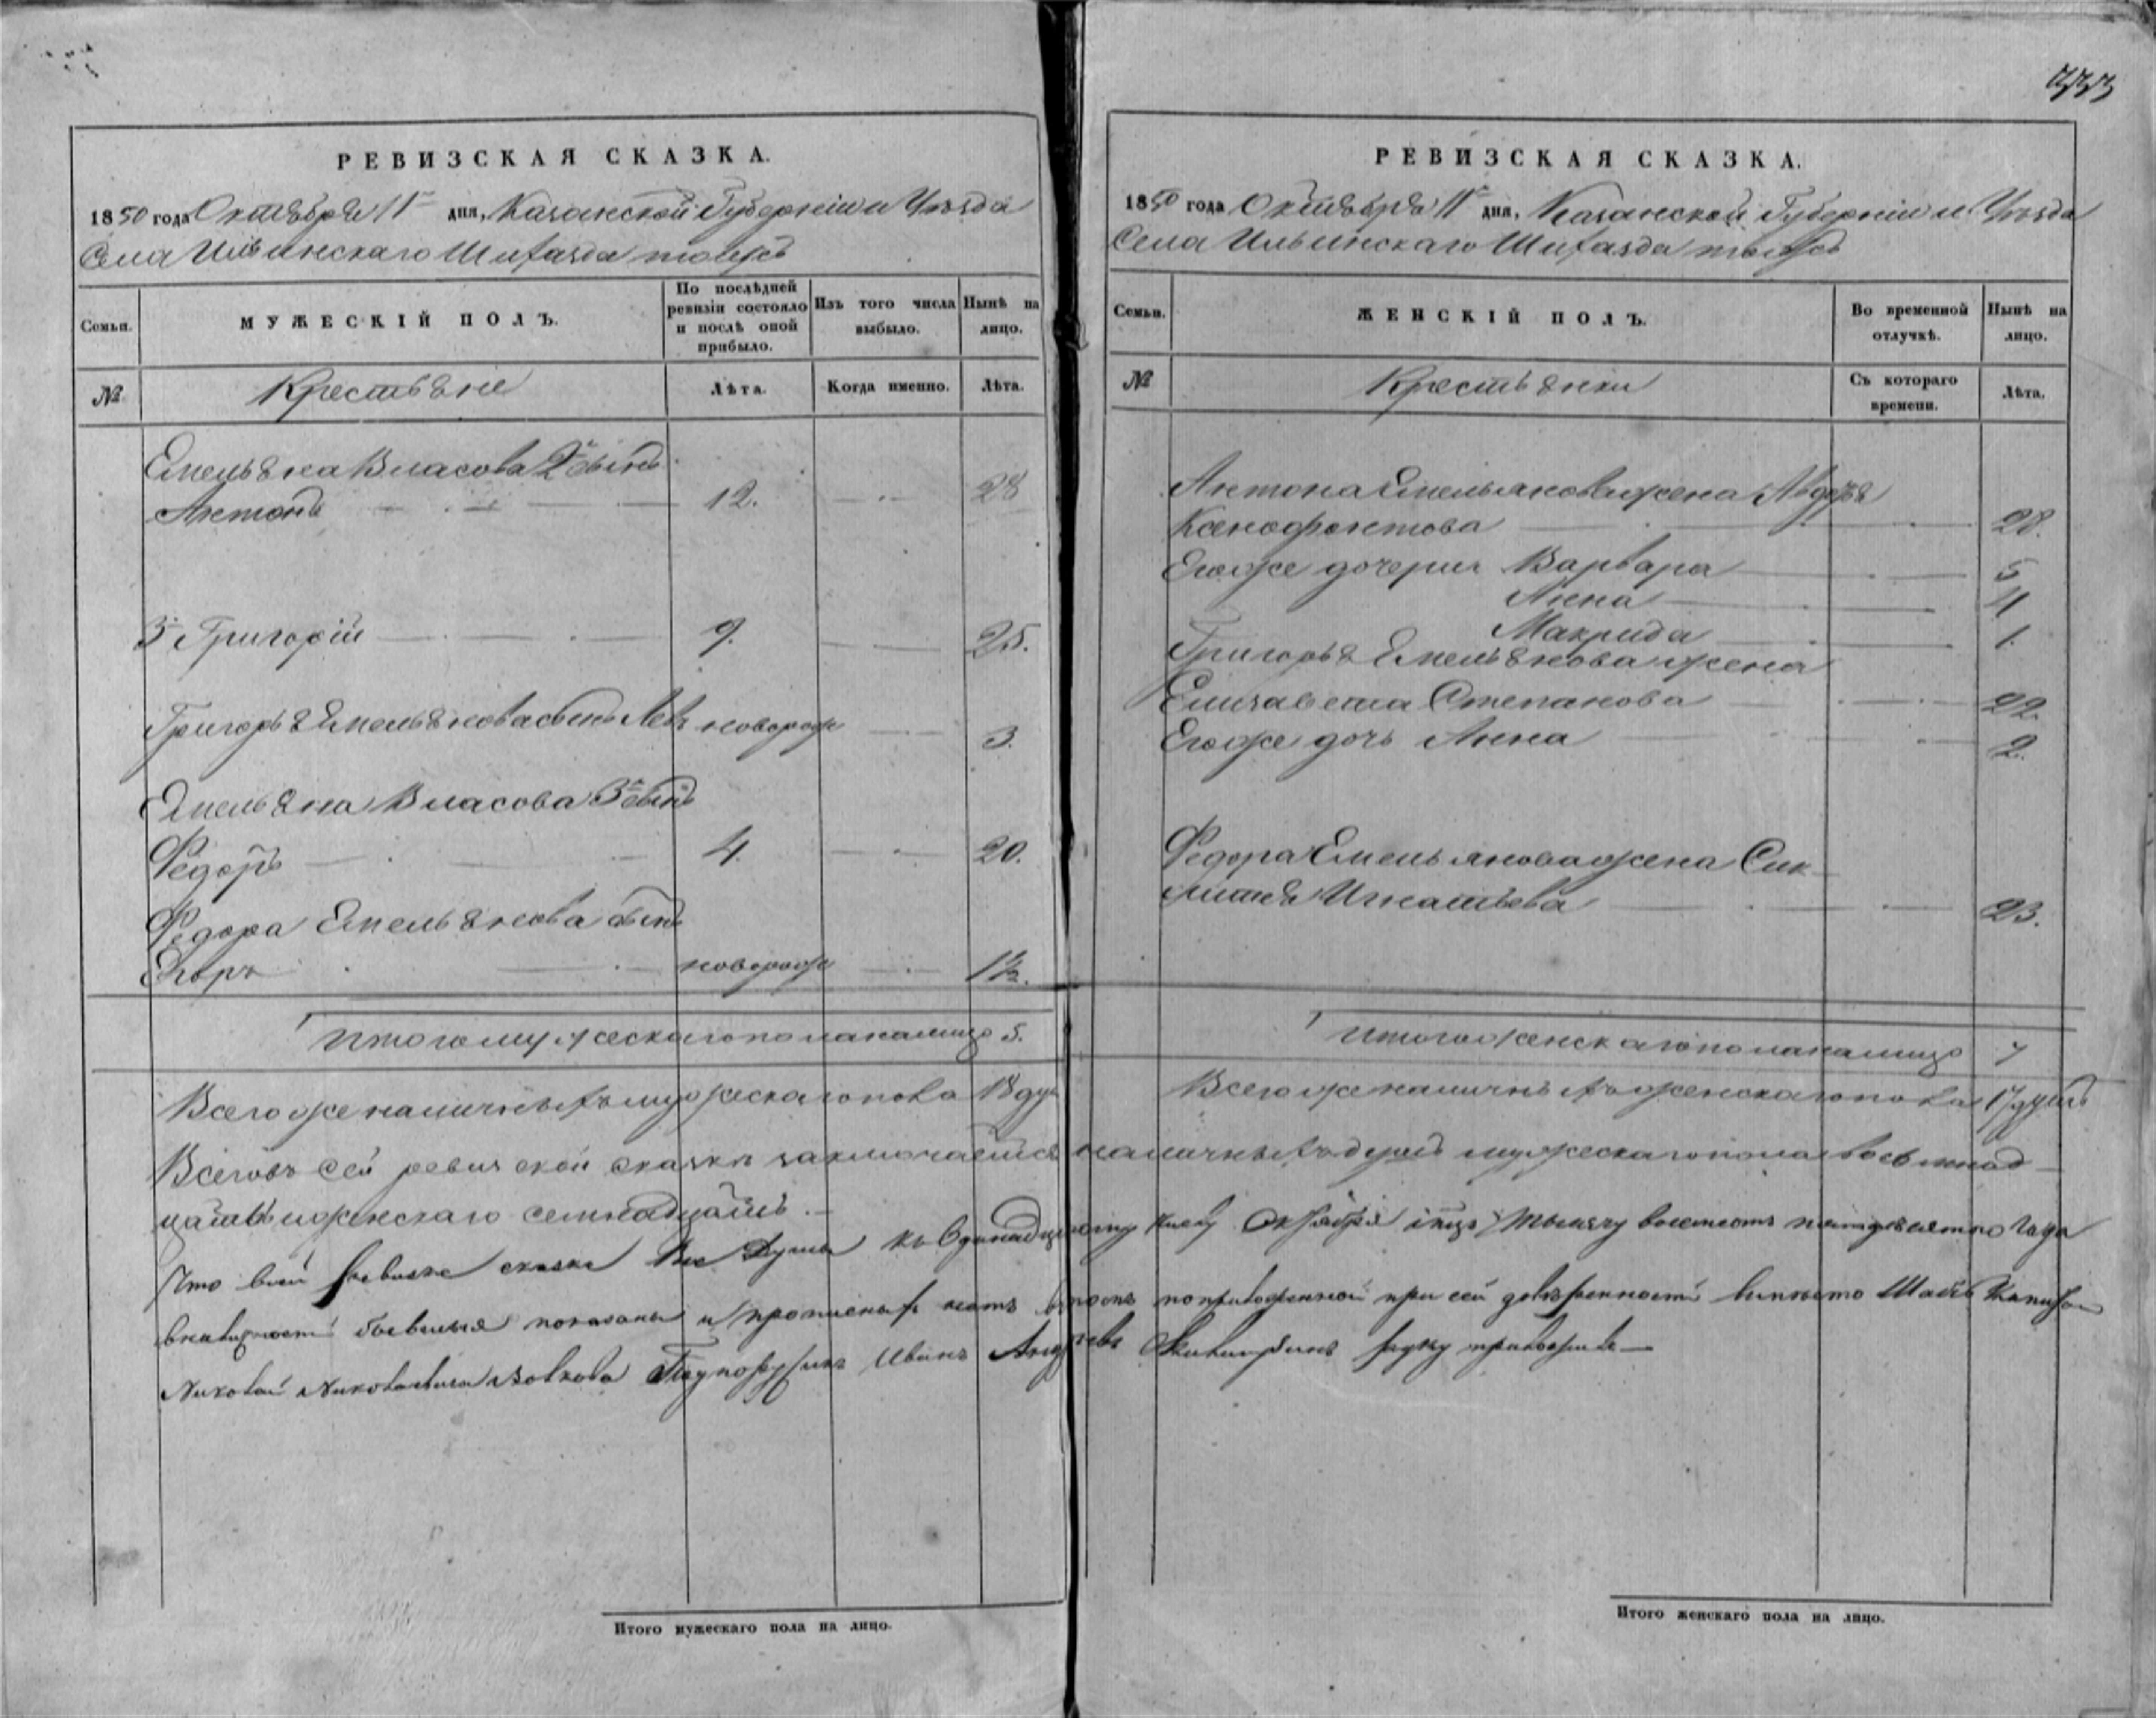 777
РЕВИЗСКАЯ СКАЗКА.
1850 года Октября 11го дня, Казанской Губерніи и Уѣзда
Села Ильинскаго Шигазда тожъ
Семьи.
МУЖЕСКІЙ ПОЛЪ.
По послѣдней ревизіи состояло и послѣ оной прибыло.
Изъ того числа выбыло.
Нынѣ на лицо.
№
Крестьяне
Лѣта.
Когда именно.
Лѣта.
Емельяна Власова 2й сынъ
Антонъ 12. 28
3й Григорій 9. 25.
Григорья Емельянова сынъ Левъ новорож 3.
Емельяна Власова 3й сынъ
Федоръ 4. 20.
Федора Емельянова сынъ
Егоръ новорож 1½.
Итого мужескаго пола налицо 5.
Всего же наличныхъ мужескаго пола 18 душ
РЕВИЗСКАЯ СКАЗКА.
1850 года Октября 11го дня, Казанской Губерніи и Уѣзда
Села Ильинскаго Шигазда тожъ
Семьи.
ЖЕНСКІЙ ПОЛЪ.
Во временной отлучкѣ.
Нынѣ на лицо.
№
Крестьянки
Съ котораго времени.
Лѣта.
Антона Емельянова жена Авдотья
Ксенофонтова 28.
Егоже дочери Варвара 5
Анна 4
Макрида 1.
Григорья Емельянова жена
Елизавета Степанова 22.
Егоже дочь Анна 2.
Федора Емельянова жена Сик
литія Игнатьева 23.
Итого женскаго пола налицо 7
Всего же наличныхъ женскаго пола 17 душъ
Всего въ сей ревизской сказкѣ заключается наличныхъ душъ мужескаго пола восемнад
цать и женскаго семнадцать.
Что въ сей ревизской сказке все души къ Одинадцатому числу Октября тысячу восемсотъ пятидесятого года
в наличности бывшия показаны и прописныхъ нетъ въ томъ по приложенной при сей доверенности вместо Штабъ Капитан
Николай Николаевича Волкова Иванъ Андреевъ руку приложилъ
Итого мужескаго пола на лицо.
Итого женскаго пола на лицо.